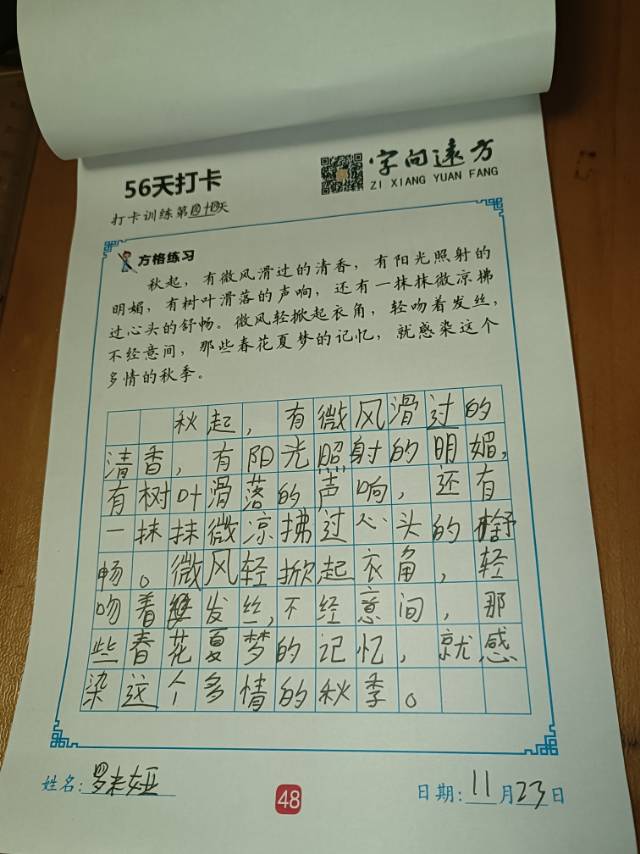 56天打卡
字向遠方
ZI XIANG YUAN FANG
打卡训练第四十四天
方格练习
秋起，有微风滑过的清香，有阳光照射的
明媚，有树叶滑落的声响，还有一抹抹微凉拂
过心头的舒畅。微风轻掀起衣角，轻吻着发丝，
不经意间，那些春花夏梦的记忆，就感染这个
多情的秋季。
秋起，有微风滑过的
清香，有阳光照射的明媚，
有树叶滑落的声响，还有
一抹抹微凉拂过心头的舒
畅。微风轻掀起衣角，轻
吻着发丝，不经意间，那
些春花夏梦的记忆，就感
染这个多情的秋季。
姓名：
48
日期：11月23日